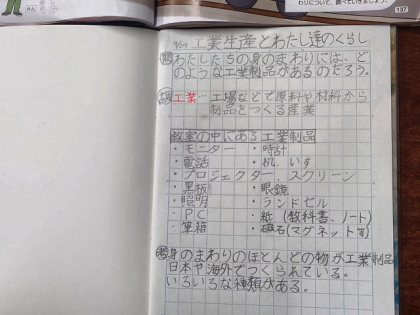 わりについて、調べていきましょう。
137
9/17 工業生産とわたし達のくらし
問 わたしたちの身のまわりには、ど
のような工業製品があるのだろう。
工業…工場などで原料や材料から
製品をつくる産業
教室の中にある工業製品
・モニター ・時計
・電話 ・机、いす
・プロジェクター、スクリーン
・黒板 ・眼鏡
・照明 ・ランドセル
・PC ・紙(教科書、ノート)
・筆箱 ・磁石(マグネット等)
身のまわりのほとんどの物が工業製品
日本や海外でつくられている。
いろいろな種類がある。